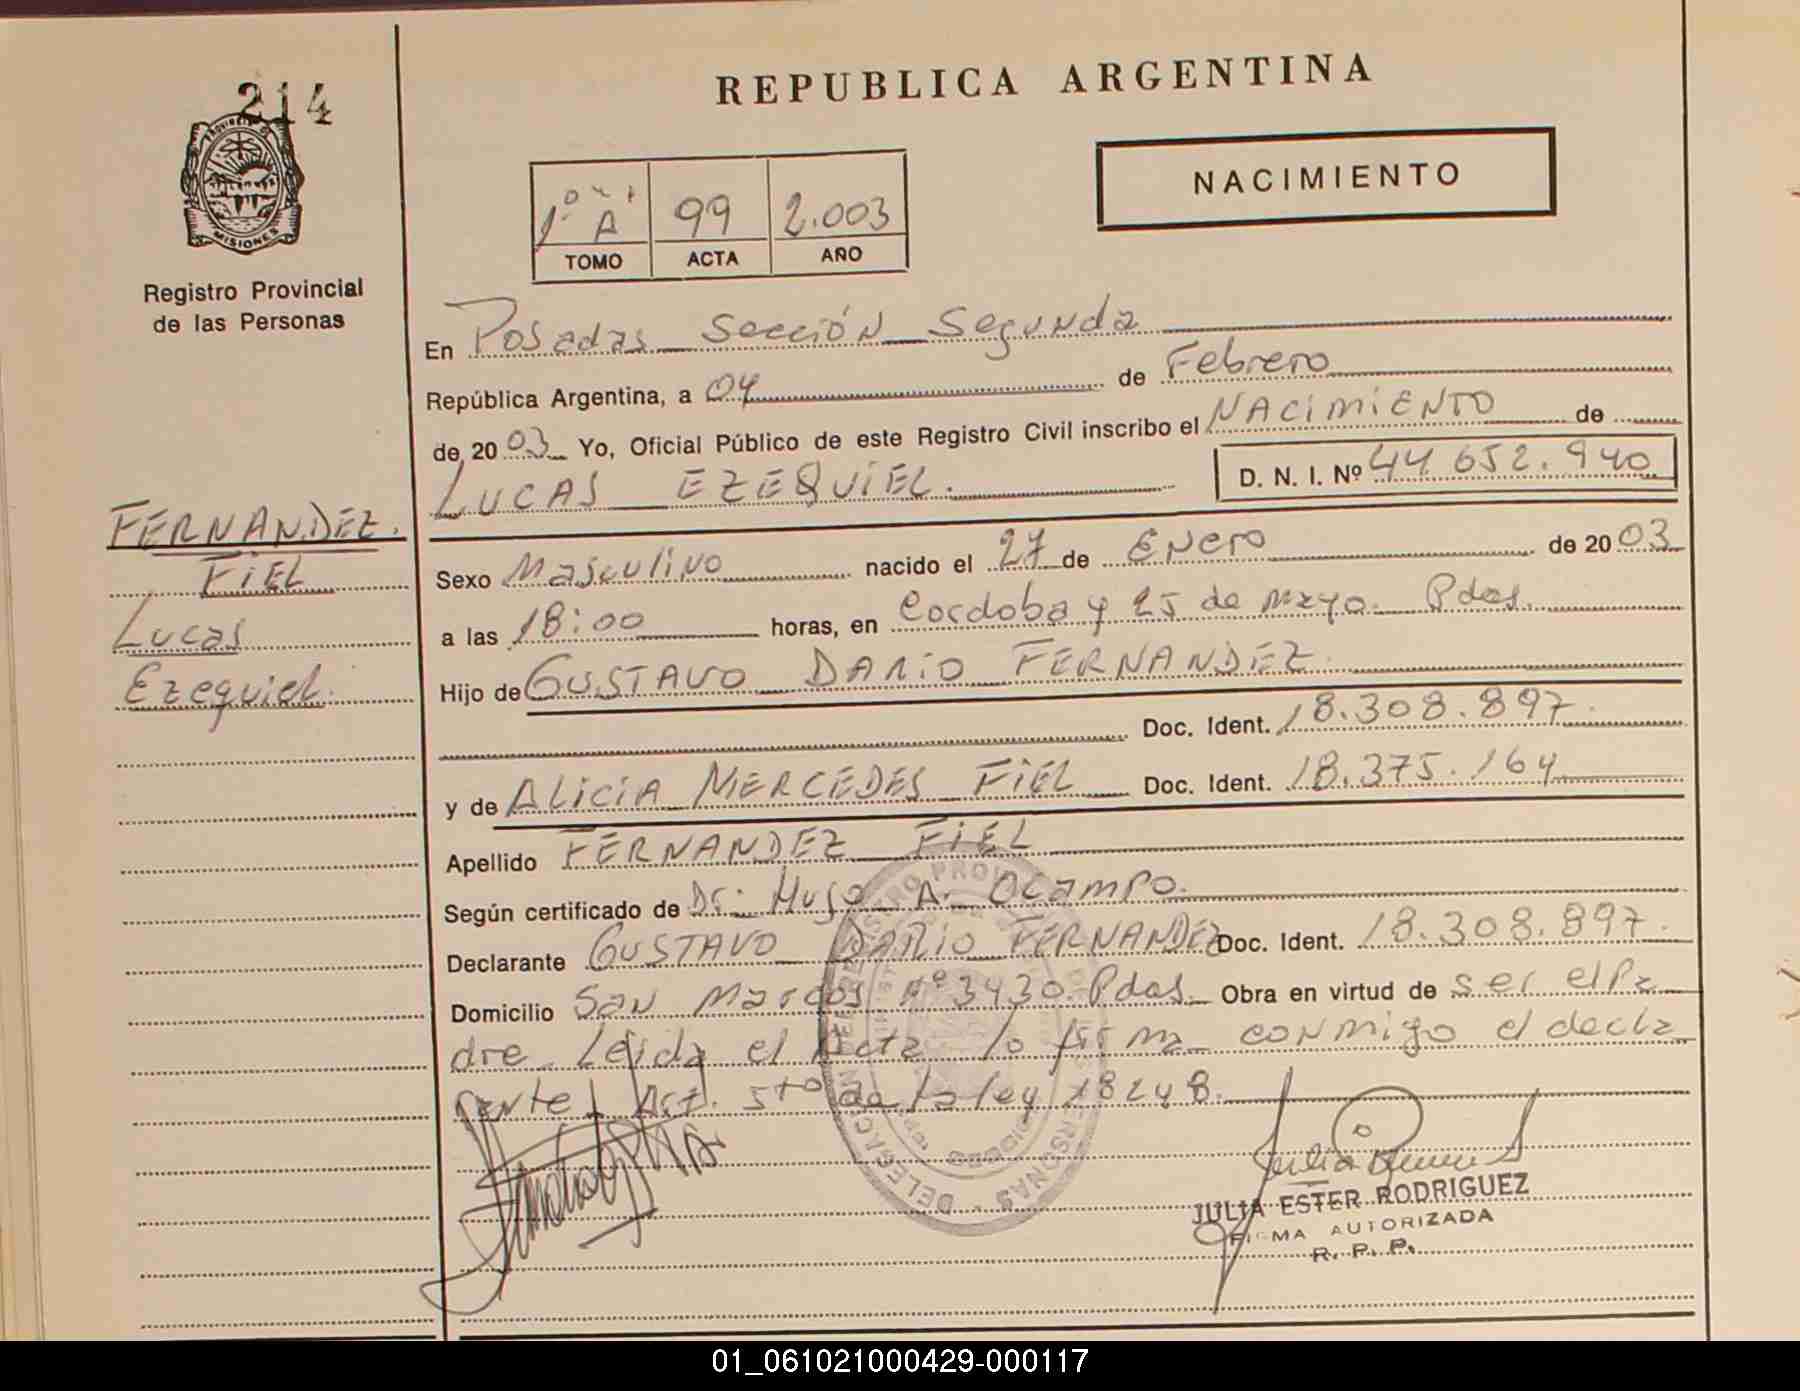 214
PROVINCIA DE
MISIONES
Registro Provincial
de las Personas
FERNANDEZ.
FIEL
Lucas
Ezequiel.
REPUBLICA ARGENTINA
NACIMIENTO
1º A 99 2.003
TOMO ACTA AÑO
En Posadas Sección Segunda
República Argentina, a 04 de Febrero
de 2003 Yo, Oficial Público de este Registro Civil inscribo el NACIMIENTO de
LUCAS EZEQUIEL. D. N. I. Nº 44.652.940
Sexo Masculino nacido el 27 de Enero de 2003
a las 18:00 horas, en Cordoba y 25 de Mayo. Pdas.
Hijo de GUSTAVO DARIO FERNANDEZ.
Doc. Ident. 18.308.897.
y de ALICIA MERCEDES FIEL Doc. Ident. 18.375.164
Apellido FERNANDEZ FIEL
Según certificado de Dr. Hugo A. Ocampo.
Declarante GUSTAVO DARIO FERNANDEZ Doc. Ident. 18.308.897.
Domicilio San Marcos Nº 3430 Pdas. Obra en virtud de ser el Pa
dre Leida el Acta lo firma conmigo el decla
rante Art. 5to de la ley 18248.
JULIA ESTER RODRIGUEZ
FIRMA AUTORIZADA
R. P. P.
01_061021000429-000117